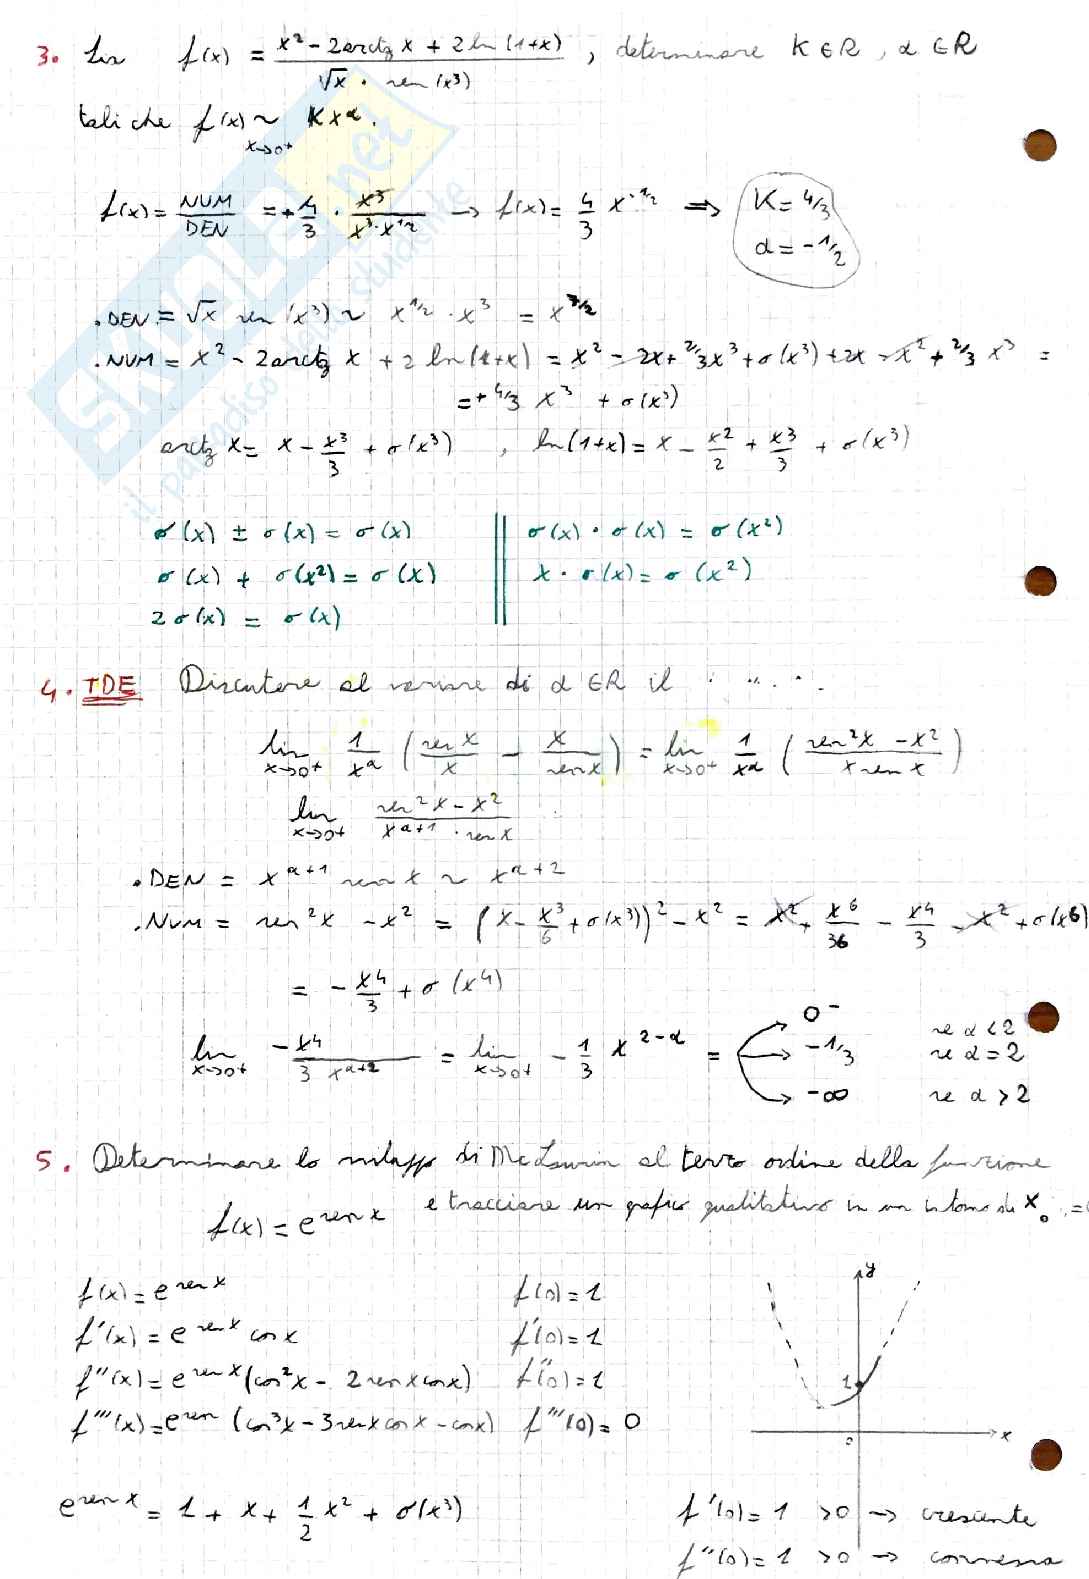 3. Sia f(x) = (x² - 2arctg x + 2 ln(1+x)) / (√x · sen(x³)) , determinare K ∈ R , α ∈ R
tali che f(x) ~ K x^α.
x→0⁺
f(x) = NUM/DEN = + 4/3 · x³/(x³·x^1/2) → f(x) = 4/3 x^-1/2 ⇒ K = 4/3
α = -1/2
. DEN = √x sen(x³) ~ x^1/2 · x³ = x^7/2
. NUM = x² - 2arctg x + 2 ln(1+x) = x² - 2x + 2/3x³ + σ(x³) + 2x - x² + 2/3 x³ =
= + 4/3 x³ + σ(x³)
arctg x = x - x³/3 + σ(x³) , ln(1+x) = x - x²/2 + x³/3 + σ(x³)
σ(x) ± σ(x) = σ(x) || σ(x) · σ(x) = σ(x²)
σ(x) + σ(x²) = σ(x) || x · σ(x) = σ(x²)
2σ(x) = σ(x)
4. TDE Discutere al variare di α ∈ R il
lim x→0⁺ 1/x^α (sen x/x - x/sen x) = lim x→0⁺ 1/x^α ((sen²x - x²)/(x sen x))
lim x→0⁺ (sen²x - x²)/(x^α+1 · sen x)
. DEN = x^α+1 sen x ~ x^α+2
. NUM = sen²x - x² = (x - x³/6 + σ(x³))² - x² = x² + x⁶/36 - x⁴/3 - x² + σ(x⁶)
= - x⁴/3 + σ(x⁴)
lim x→0⁺ -x⁴/(3 x^α+2) = lim x→0⁺ - 1/3 x^2-α =
0⁻ se α < 2
-1/3 se α = 2
-∞ se α > 2
5. Determinare lo sviluppo di McLaurin al terzo ordine della funzione
f(x) = e^sen x e tracciare un grafico qualitativo in un intorno di x₀ =
f(x) = e^sen x f(0) = 1
f'(x) = e^sen x cos x f'(0) = 1
f''(x) = e^sen x (cos²x - 2 sen x cos x) f''(0) = 1
f'''(x) = e^sen (cos³x - 3 sen x cos x - cos x) f'''(0) = 0
y
1
0
x
e^sen x = 1 + x + 1/2 x² + σ(x³)
f'(0) = 1 > 0 → crescente
f''(0) = 1 > 0 → convessa
SKUOLA.net
il paradiso dello studente